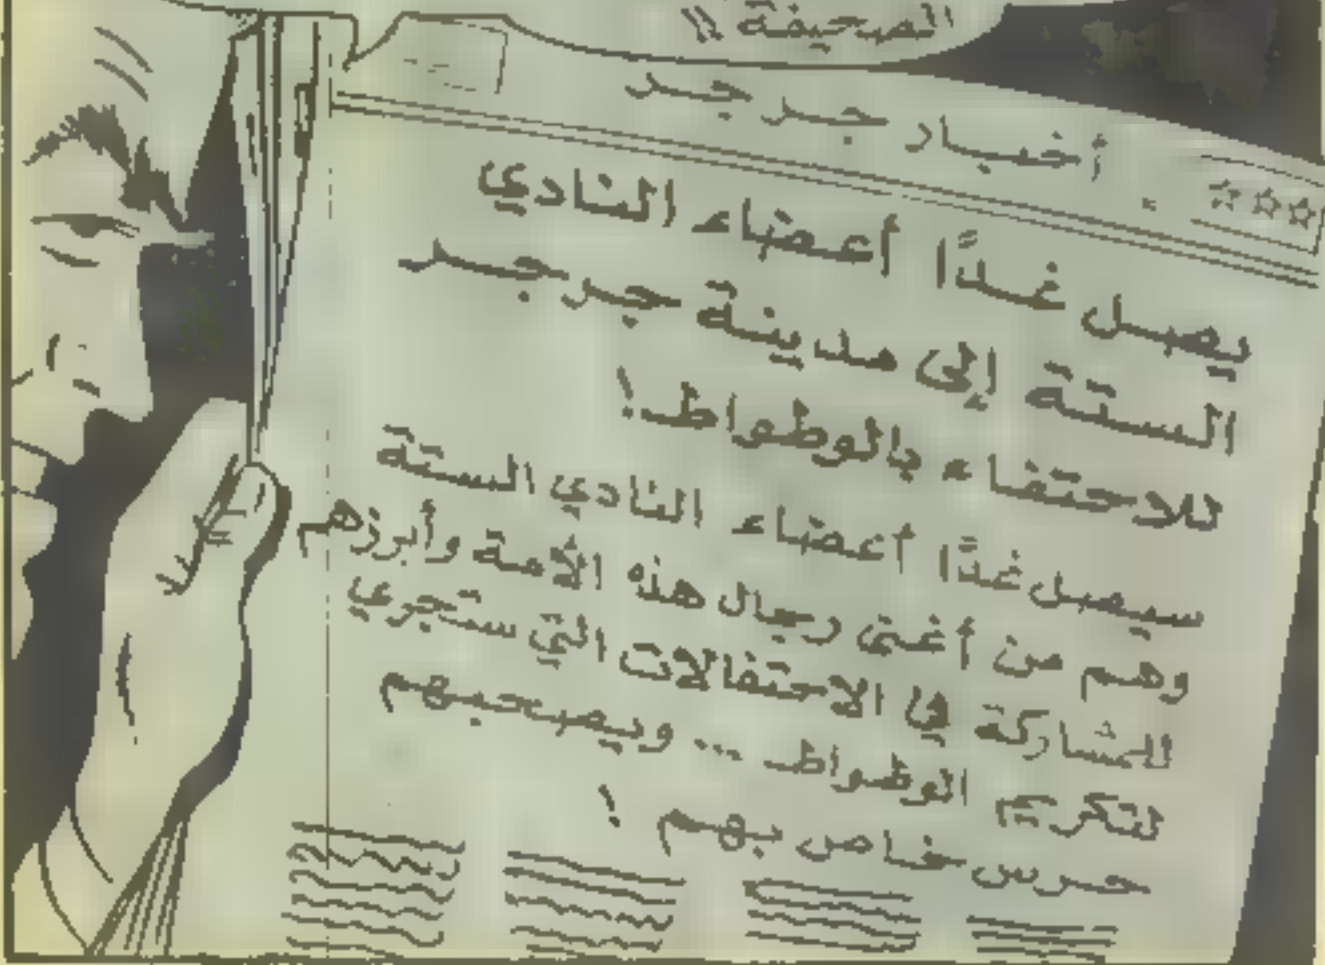 الصحيفة !!
أخبار جرجر
يصل غدًا أعضاء النادي
الستة إلى مدينة جرجر
للاحتفاء بالوطواط!
سيصل غدًا أعضاء النادي الستة
وهم من أغنى رجال هذه الأمة وأبرزهم
للمشاركة في الاحتفالات التي ستجري
لتكريم الوطواط ... ويصحبهم
حرس خاص بهم !